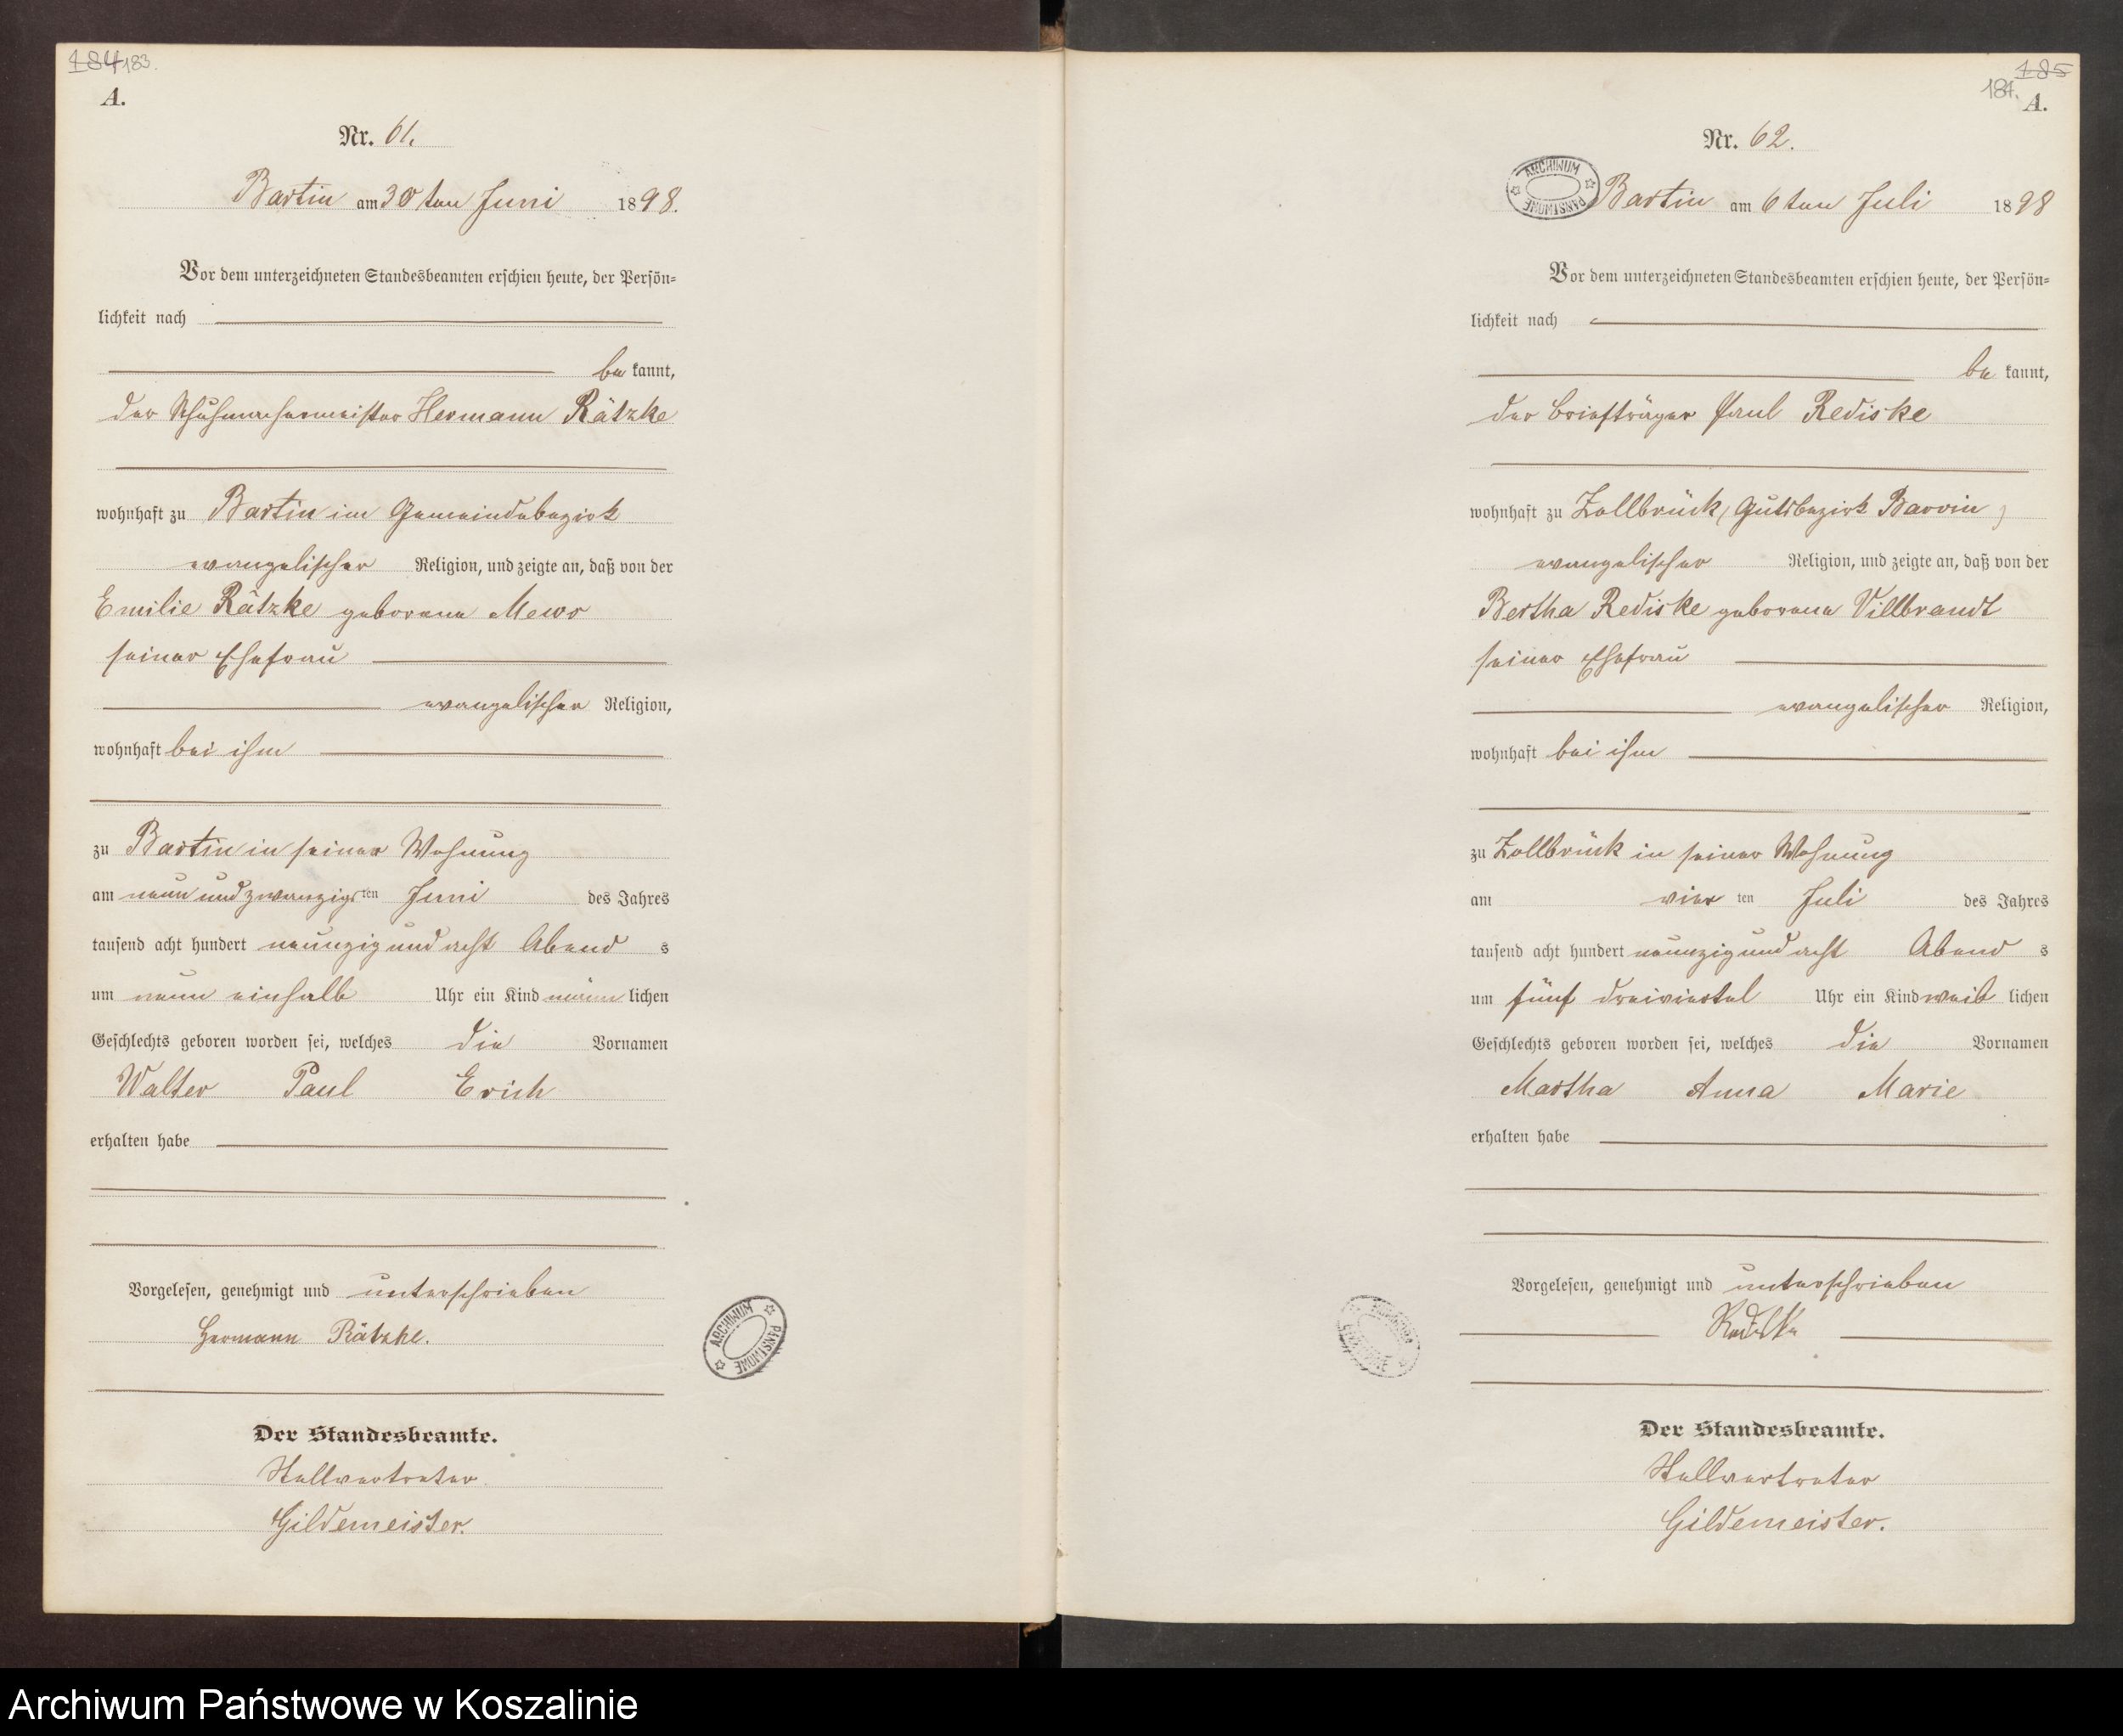 184 183.
A.
Nr. 61.
Bartin am 30ten Juni 1898.
Vor dem unterzeichneten Standesbeamten erschien heute, der Persön-
lichkeit nach
be kannt,
der Schuhmachermeister Hermann Rätzke
wohnhaft zu Bartin im Gemeindebezirk
evangelischer Religion, und zeigte an, daß von der
Emilie Rätzke geborene Mews
seiner Ehefrau
evangelischer Religion,
wohnhaft bei ihm
zu Bartin in seiner Wohnung
am neun und zwanzigsten Juni des Jahres
tausend acht hundert neunzig und acht Abend s
um neun einhalb Uhr ein Kind männ lichen
Geschlechts geboren worden sei, welches die Vornamen
Walter Paul Erich
erhalten habe
Vorgelesen, genehmigt und unterschrieben
Hermann Rätzke.
ARCHIWUM PAŃSTWOWE
Der Standesbeamte.
Stellvertreter
Gildemeister.
185
184.
A.
Nr. 62.
ARCHIWUM PAŃSTWOWE
Bartin am 6ten Juli 1898
Vor dem unterzeichneten Standesbeamten erschien heute, der Persön-
lichkeit nach
be kannt,
der Briefträger Paul Rediske
wohnhaft zu Zollbrück, Gutsbezirk Barvin,
evangelischer Religion, und zeigte an, daß von der
Bertha Rediske geborene Villbrandt
seiner Ehefrau
evangelischer Religion,
wohnhaft bei ihm
zu Zollbrück in seiner Wohnung
am vier ten Juli des Jahres
tausend acht hundert neunzig und acht Abend s
um fünf dreiviertel Uhr ein Kind weib lichen
Geschlechts geboren worden sei, welches die Vornamen
Martha Anna Marie
erhalten habe
Vorgelesen, genehmigt und unterschrieben
Rediske
Der Standesbeamte.
Stellvertreter
Gildemeister.
Archiwum Państwowe w Koszalinie